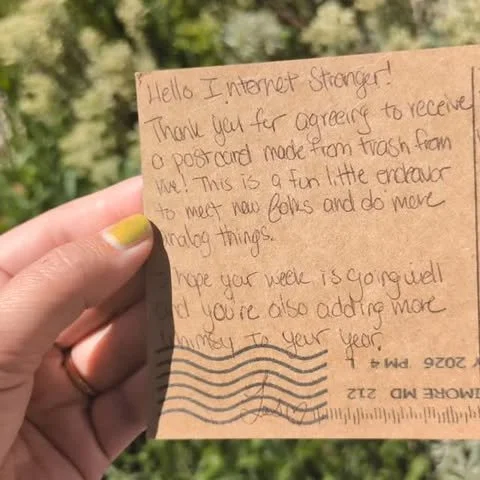 Hello Internet Stranger!
Thank you for agreeing to receive
a postcard made from trash from
me! This is a fun little endeavor
to meet new folks and do more
analog things.
I hope your week is going well
and you're also adding more
whimsy to your year.
Y 2026 PM 4 L
IMORE MD 212